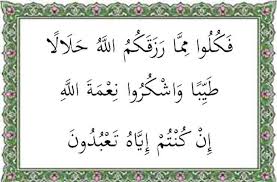 فَكُلُوا مِمَّا رَزَقَكُمُ اللَّهُ حَلَالًا
طَيِّبًا وَاشْكُرُوا نِعْمَةَ اللَّهِ
إِنْ كُنْتُمْ إِيَّاهُ تَعْبُدُونَ